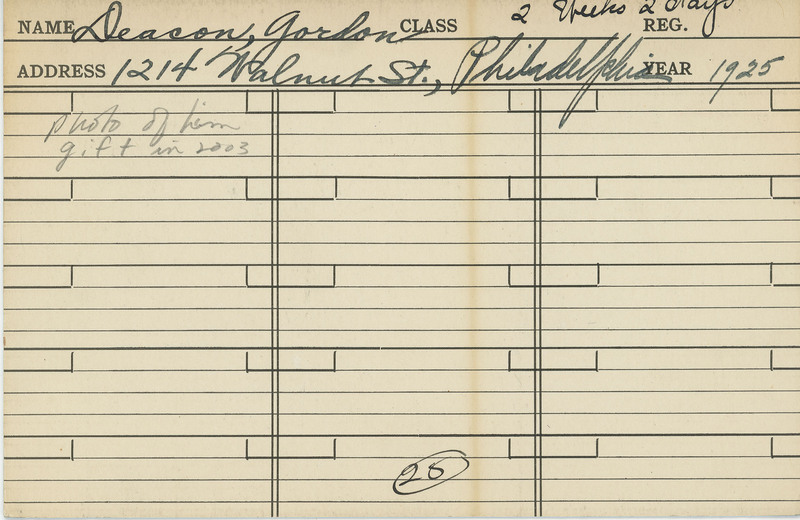 2 Weeks 2 days
NAME Deacon, Gordon CLASS REG.
ADDRESS 1214 Walnut St., Philadelphia YEAR 1925
photo of him
gift in 2003
25